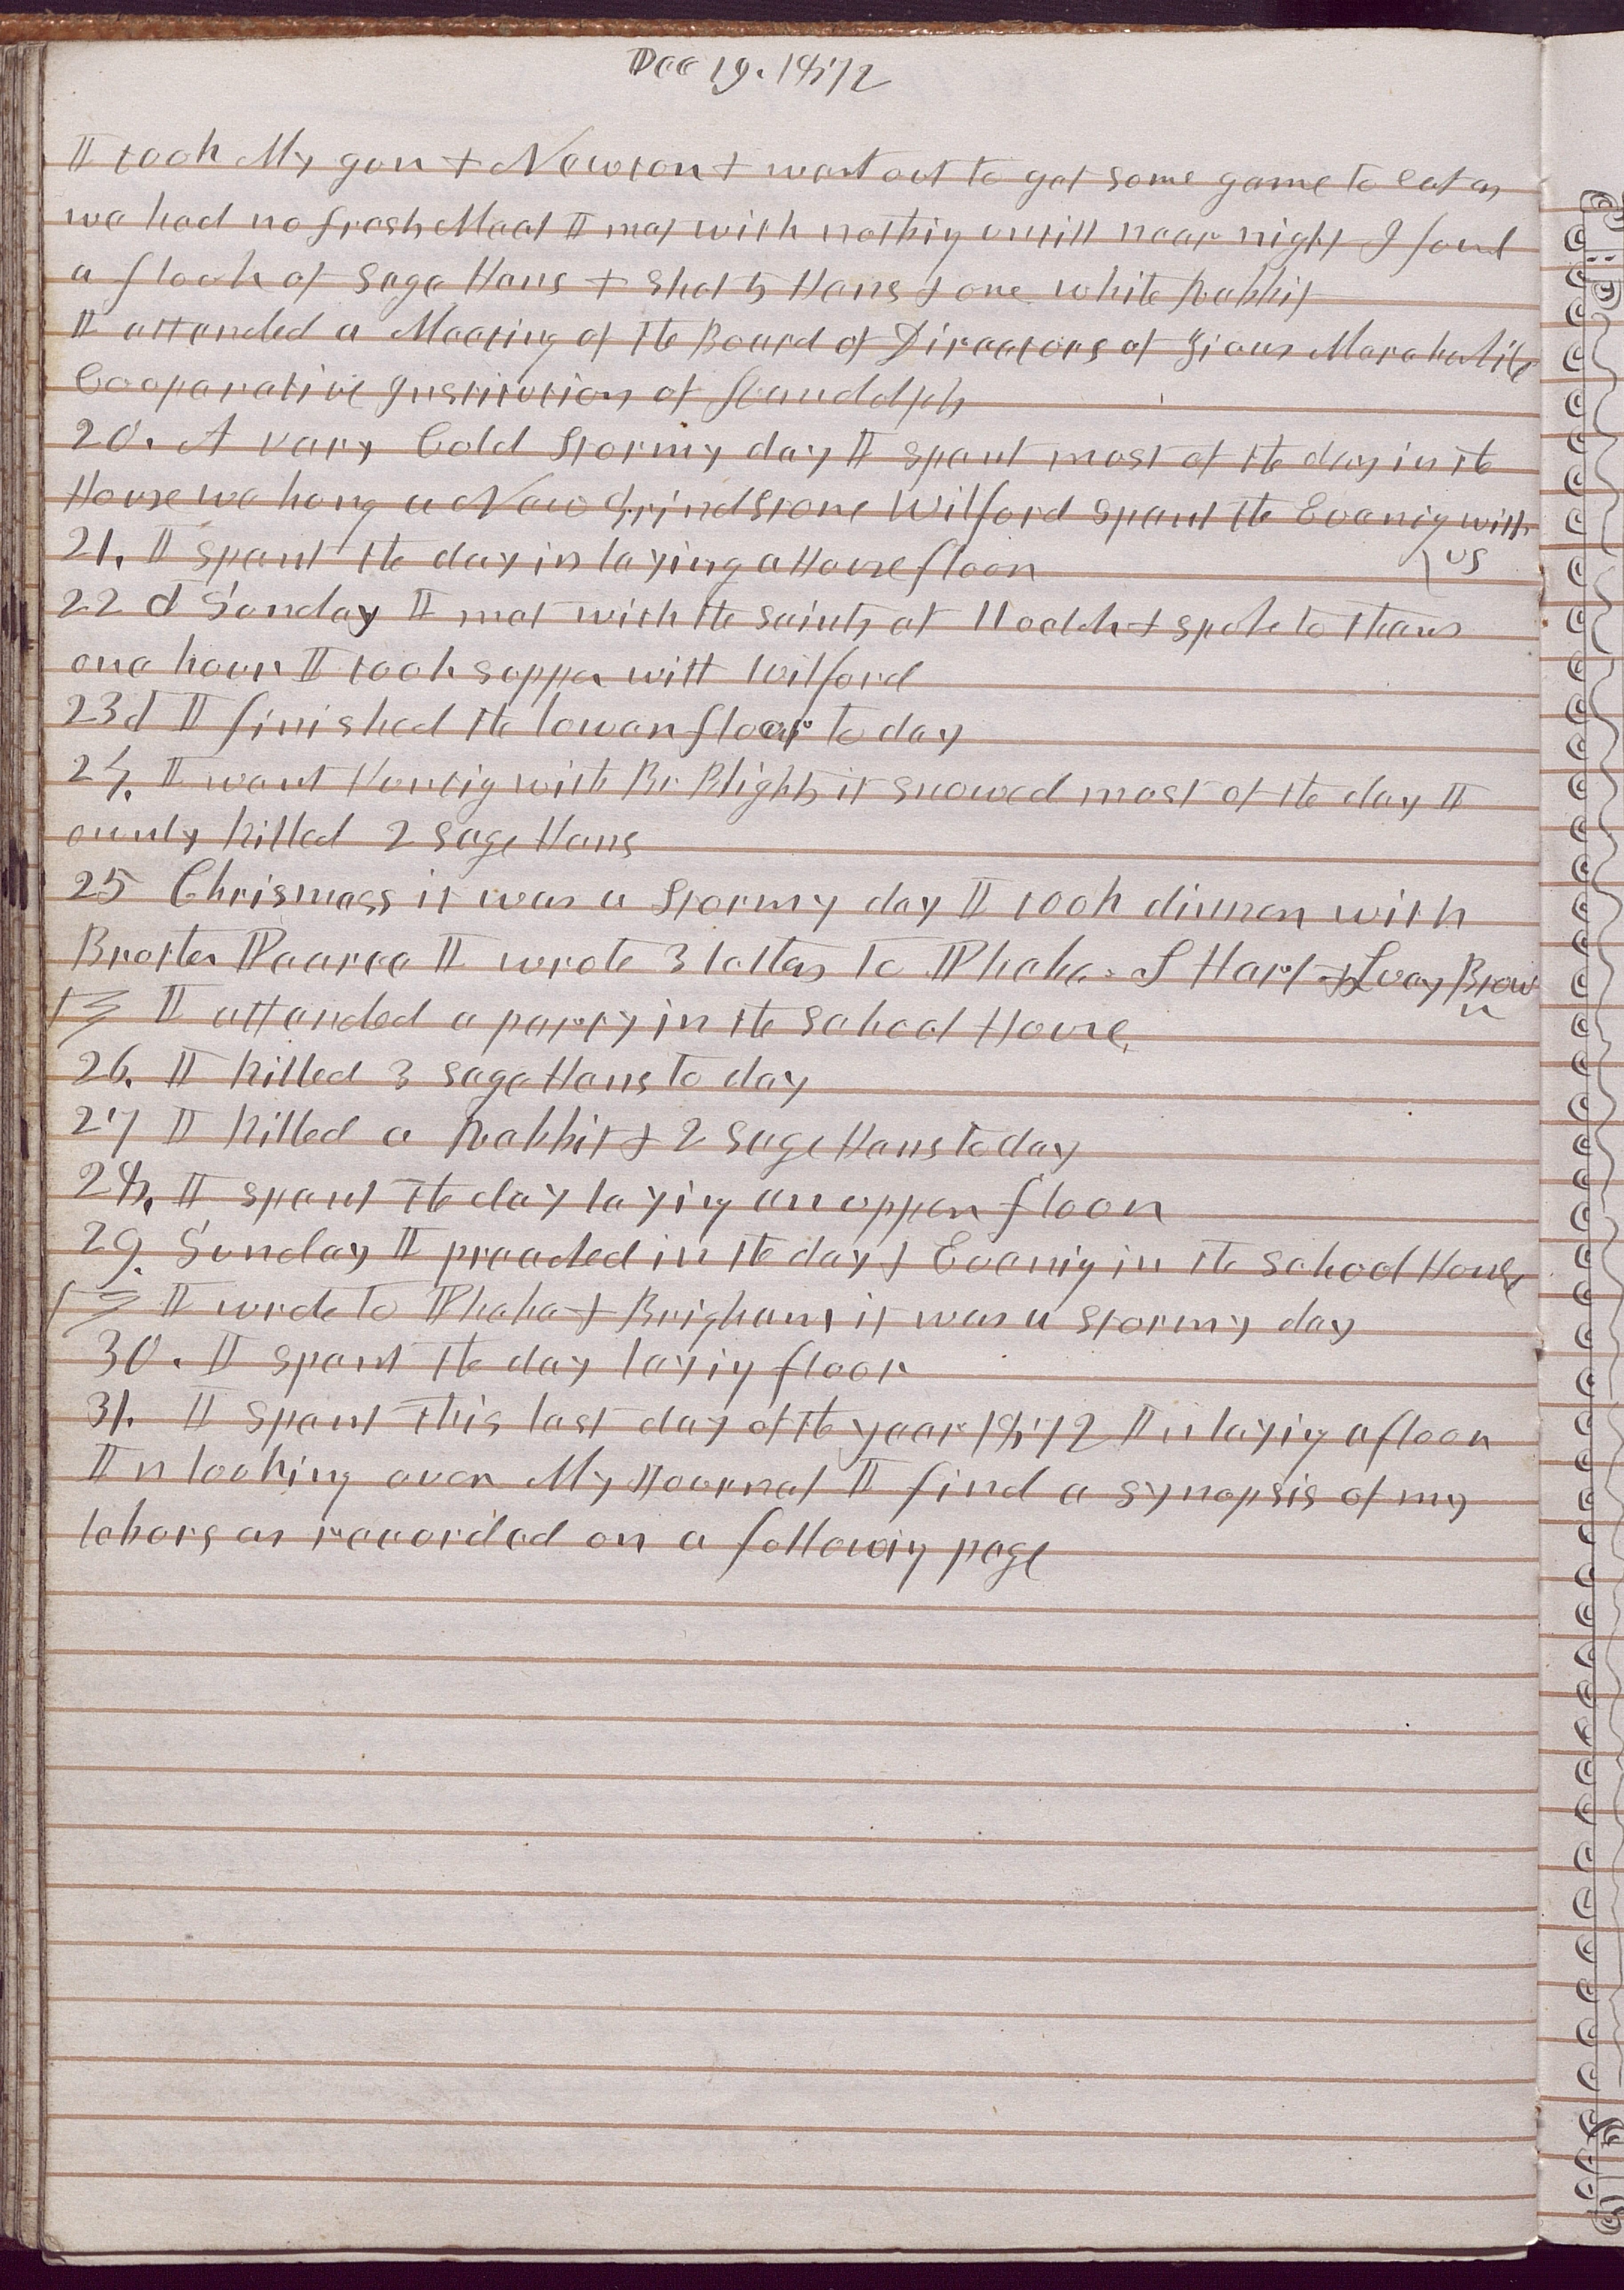 Dec 19. 1872
I took My gun & Newton & went out to get some game to eat as
we had no fresh Meat I met with nothig untill near night I found
a flock of Sage Hens & Shot 5 Hens & one white Rabbit
I attended a Meeting of the Board of Directors of Zions Marchantile
Cooperative Institution of Randolph
20. A vary Cold Stormy day I spent most of the day in the
House we hung a New Grindstone Wilford spent the Evenig with
us
21. I spent the day in laying a House floor
22d Sunday I met with the Saints at 11 oclok & spoke to them
one hour I took supper with Wilford
23d I finished the lower floor to day
24. I went Huntig with Br Blight it snowed most of the day I
ounly killed 2 Sage Hens
25 Chrismass it was a Stormy day I took dinner with
Brother Pearce I wrote 3 letters to Phebe. S Hart & Lucy Brow
n
I attended a party in the School House.
26. I killed 3 Sage Hens to day
27 I killed a Rabbit & 2 Sage Hens to day
28. I spent the day laying an upper floor
29. Sunday I preached in the day & Evenig in the School House
I wrote to Phebe & Brigham, it was a stormy day
30. I spent the day layig floor
31. I spent this last day of the year 1872 In layig a floor
In looking over My Journal I find a synopsis of my
labors as recorded on a followig page